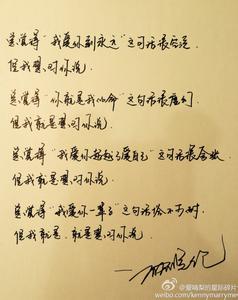 总觉得“我爱你到永远”这句话很
但我想对你说
总觉得“你就是我的命”这句话很
但我就是想对你说
总觉得“我爱你超越了爱自己”这句话很
但我就是想对你说
总觉得“我爱你一辈子”这句话俗不可耐
但我就是，就是想对你说
@爱嗨梨的星际碎片
weibo.com/kennymarryme